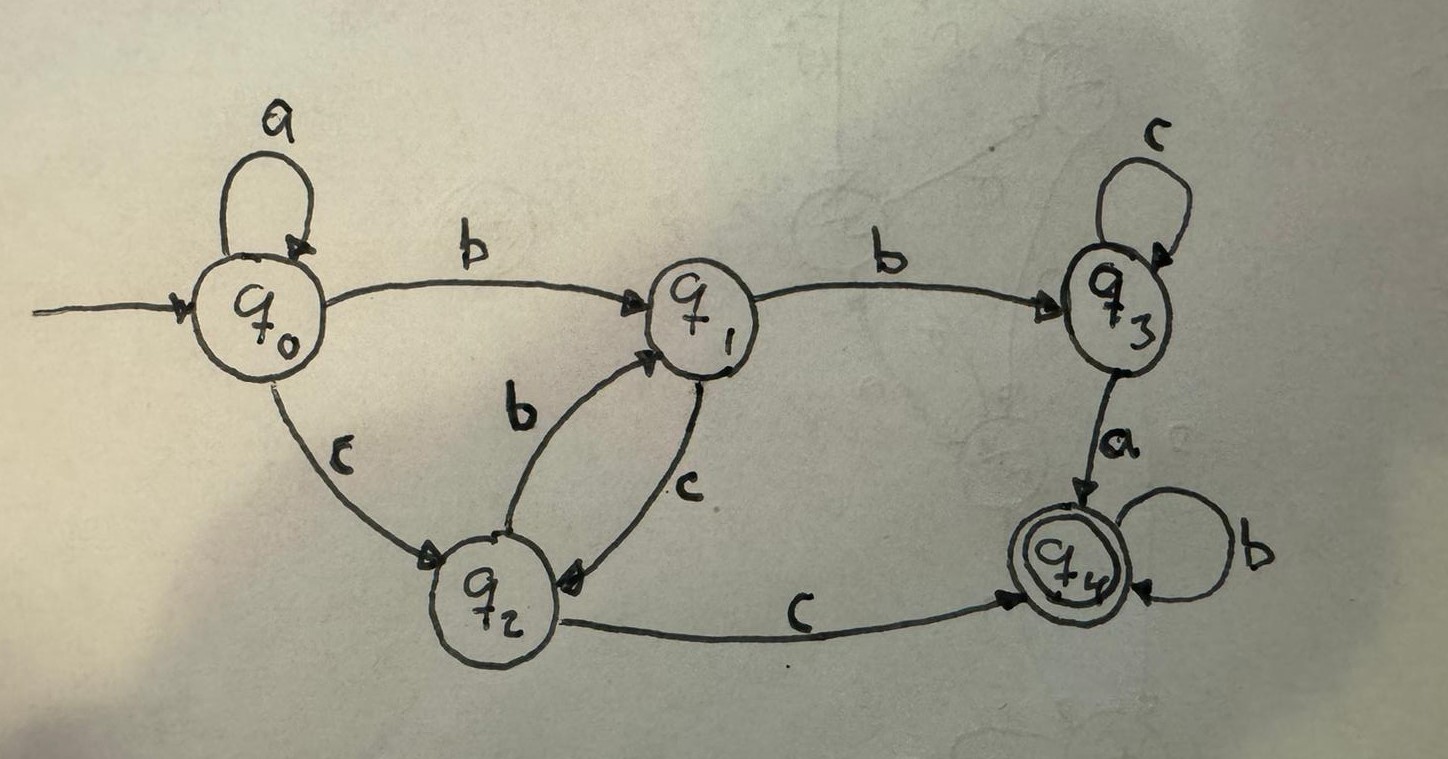 a
c
b
b
q0
q1
q3
b
c
a
c
q2
c
q4
b